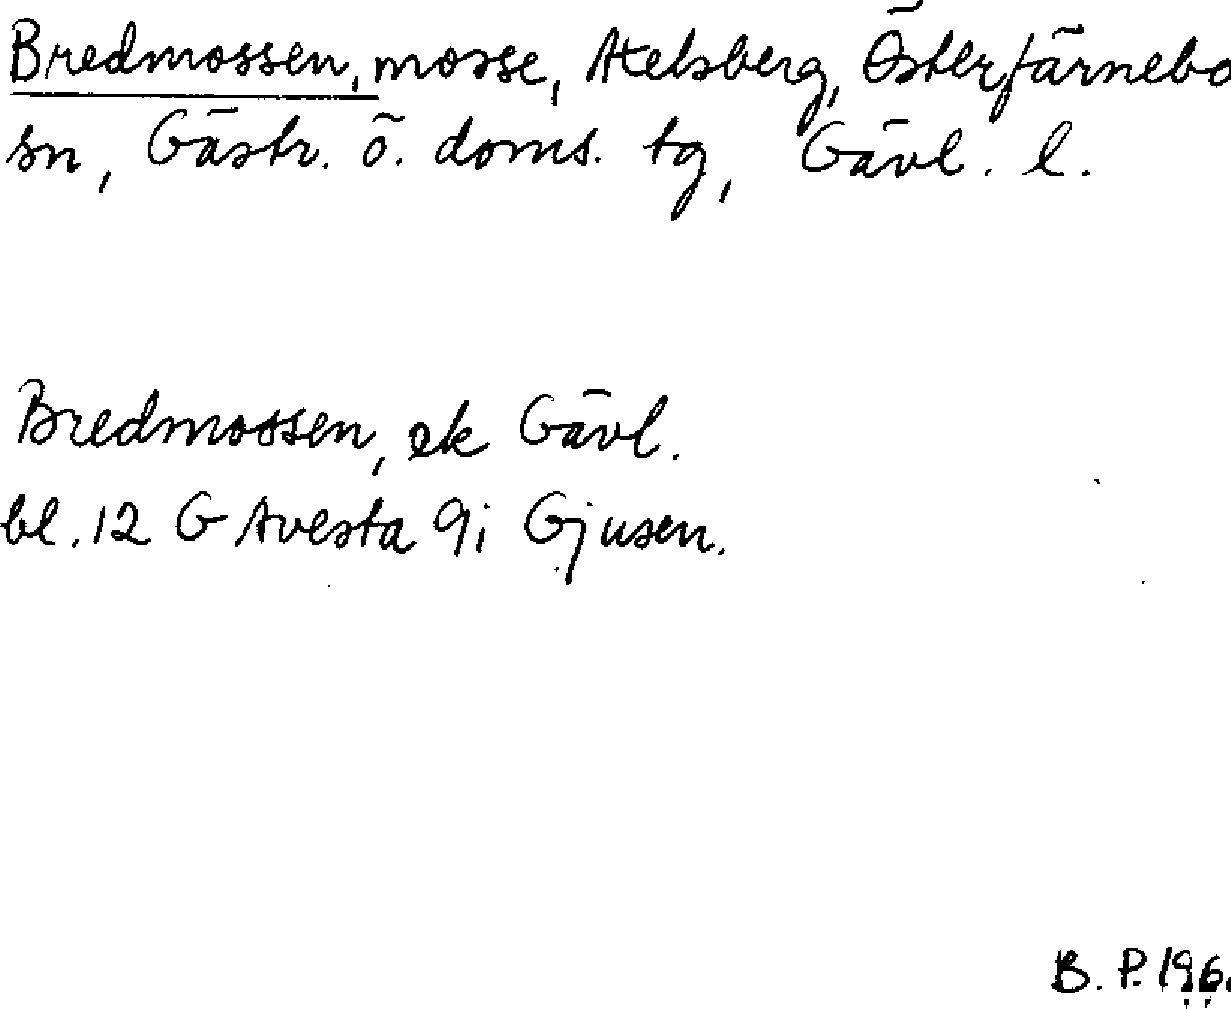 Bredmossen, mosse, Axelsberg, Österfärnebo
sn, Gästr. ö. doms. tg, Gävl. l.
Bredmossen, ek Gävl.
bl. 12 G Avesta 9i Gjusen.
B. P. 196